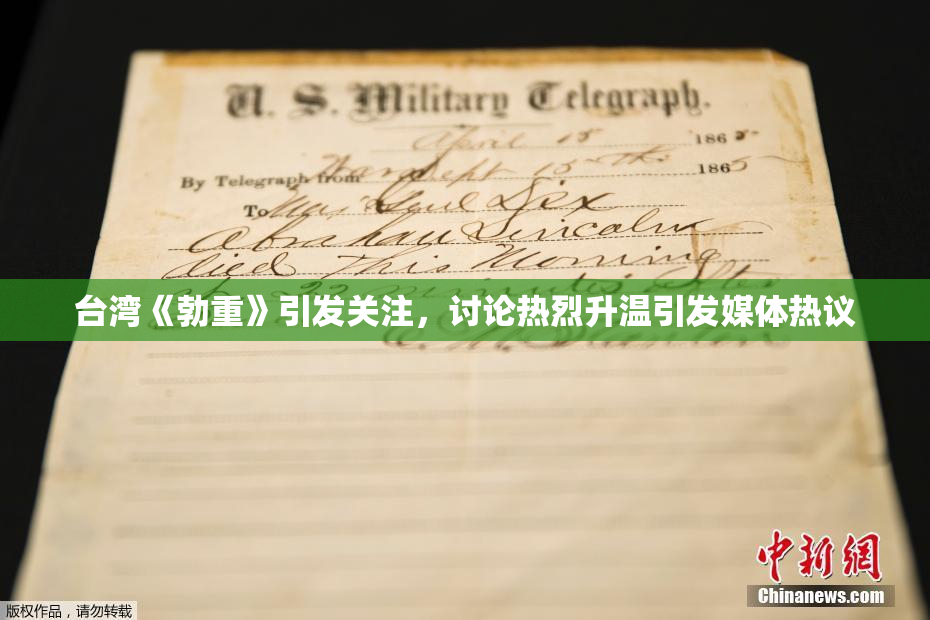 U. S. Military Telegraph.
April 15 1865
By Telegraph from War Dept 15th 1865
To Maj Genl Dix
Abraham Lincoln
died This Morning
at 22 minutes after
台湾《勃重》引发关注，讨论热烈升温引发媒体热议
E. M. Stanton
中新網
Chinanews.com
版权作品，请勿转载